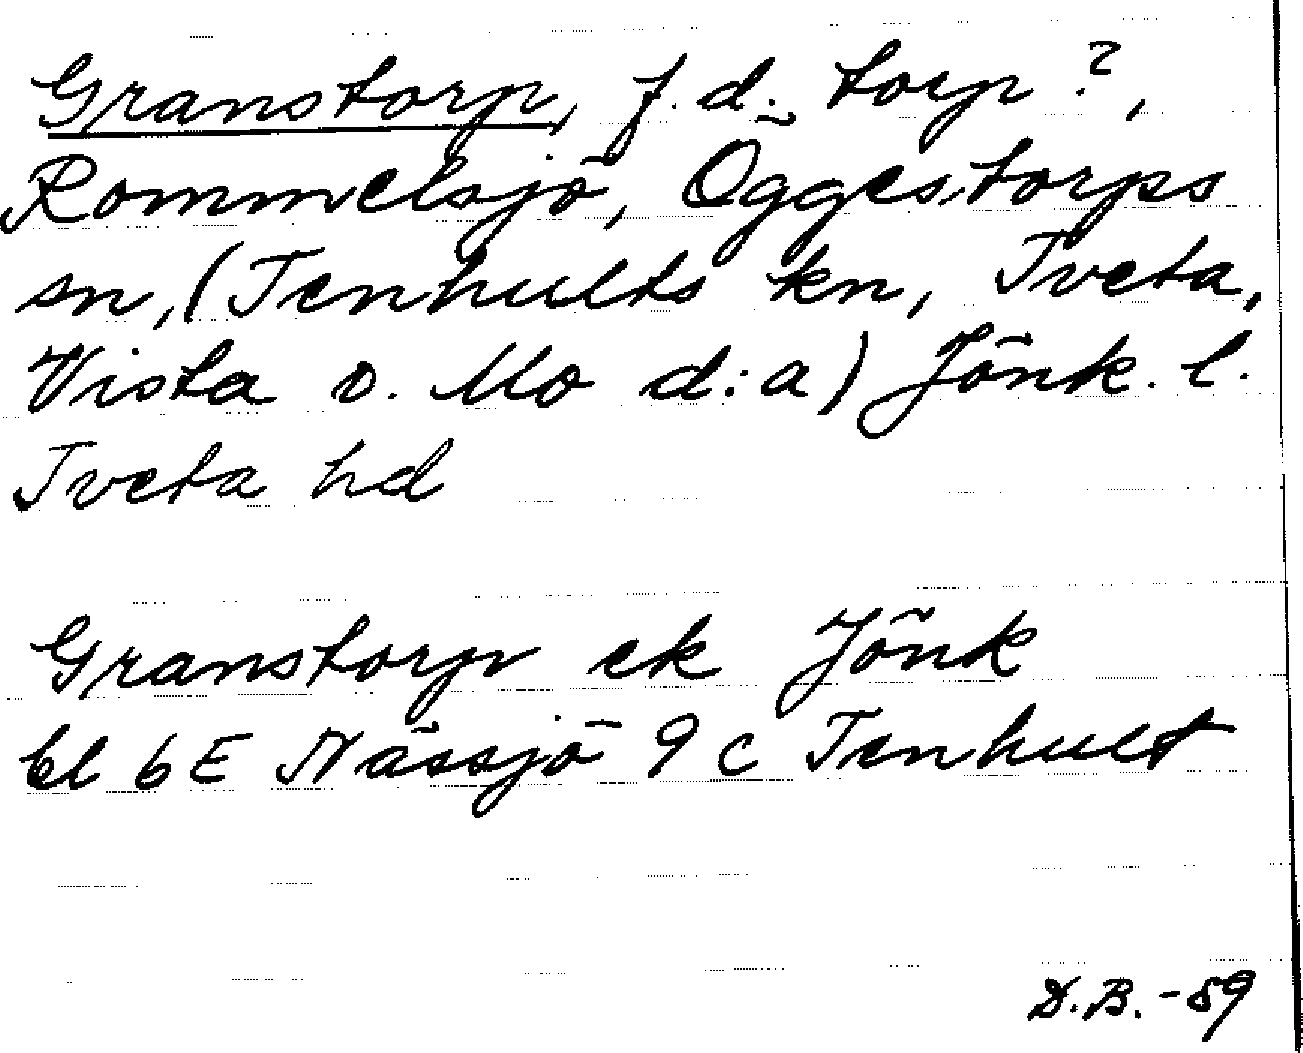 Granstorp, f.d. torp?,
Rommelsjö, Öggestorps
sn, (Tenhults kn, Tveta,
Vista o. Mo d:a) Jönk. l.
Tveta hd
Granstorp ek Jönk
bl 6E Nässjö 9 c Tenhult
D.B. -59